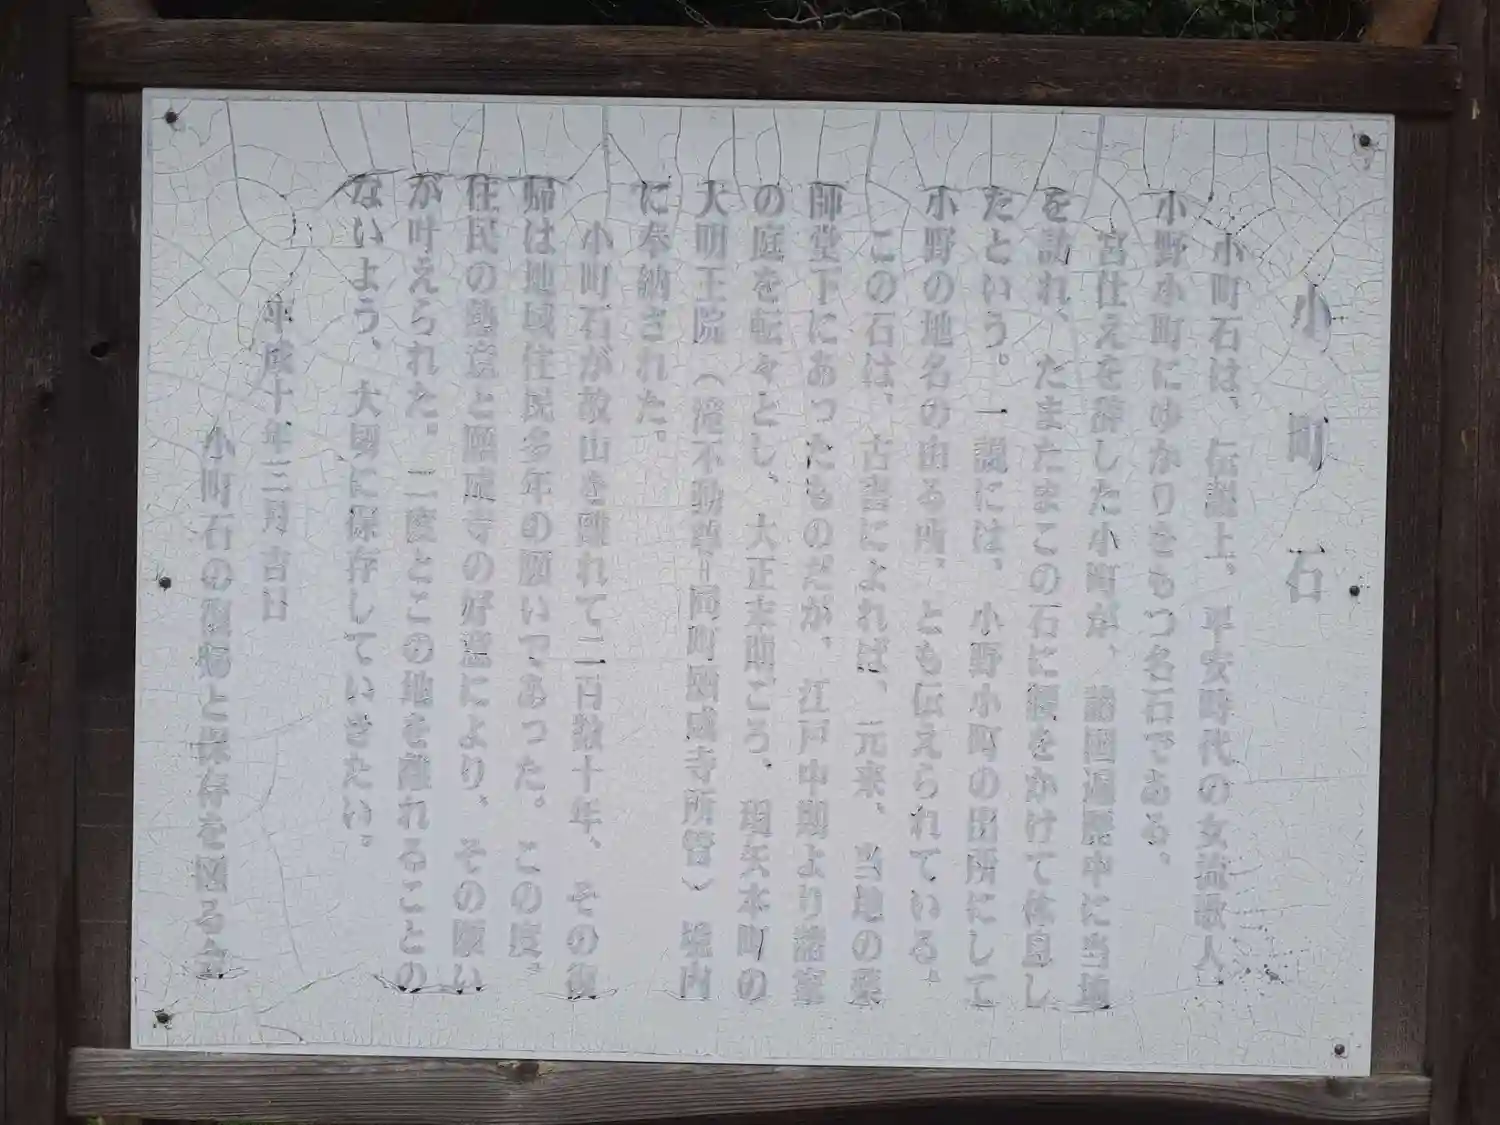 小町石
小町石は、伝説上、平安時代の女流歌人
小野小町にゆかりをもつ名石である。
宮仕えを辞した小町が、諸国遍歴中に当地
を訪れ、たまたまこの石に腰をかけて休息し
たという。一説には、小野小町の出所にして
小野の地名の由る所、とも伝えられている。
この石は、古書によれば、元来、当地の薬
師堂下にあったものだが、江戸中期より諸家
の庭を転々とし、大正末期ごろ、現矢本町の
大明王院（滝不動尊＝同町願成寺所管）境内
に奉納された。
小町石が故山を離れて二百数十年、その復
帰は地域住民多年の願いであった。この度、
住民の熱意と願成寺の好意により、その願い
が叶えられた。二度とこの地を離れることの
ないよう、大切に保存していきたい。
平成十年三月吉日
小町石の復帰と保存を図る会